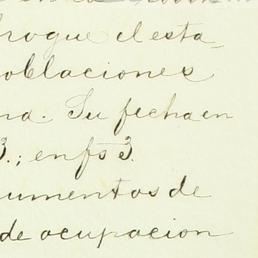 rogue el esta-
oblaciones
na. Su fecha en
3.; en fs 3.
umentos de
de ocupacion